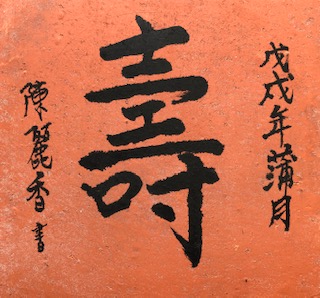 戊戌年蒲月
壽
陳麗香書